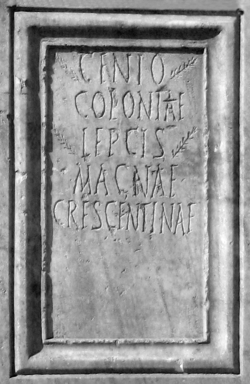 GENIO
COLONIAE
LEPCIS
MAGNAE
CRESCENTINAE